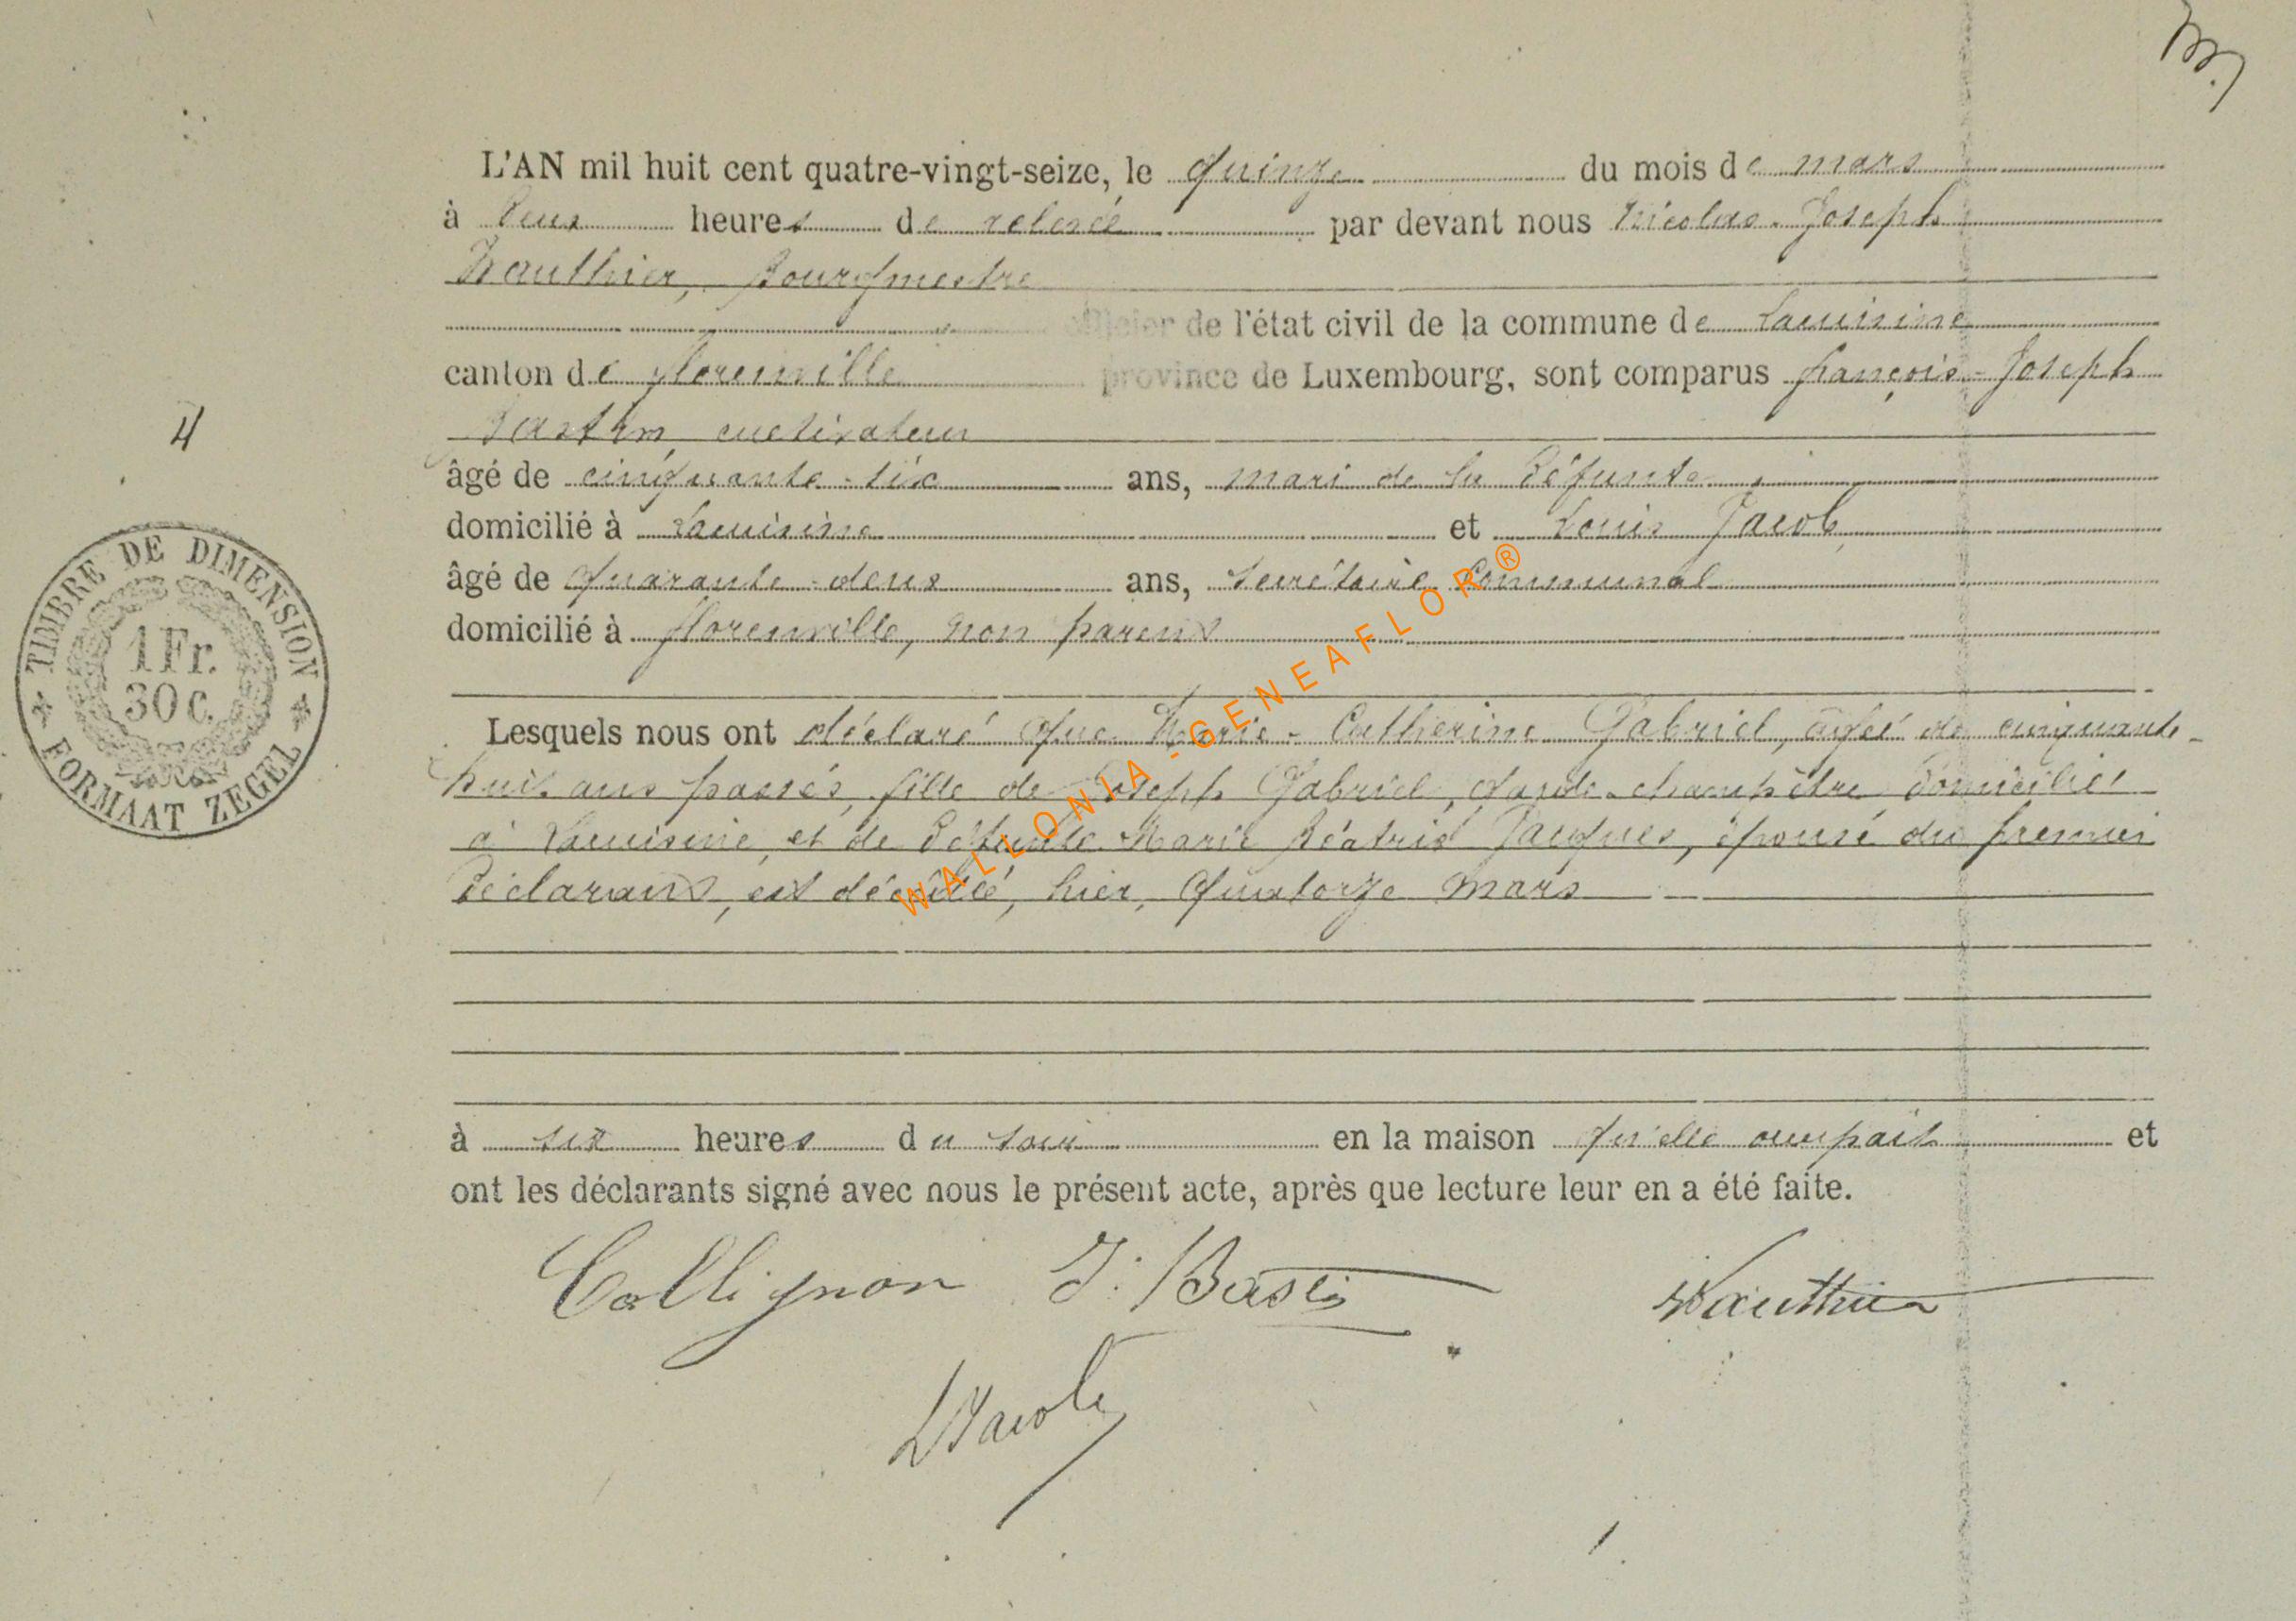 L'AN mil huit cent quatre-vingt-seize, le quinze du mois de mars
à deux heures de relevée par devant nous Nicolas-Joseph
Wauthier, Bourgmestre
officier de l'état civil de la commune de Lacuisine
canton de florenville province de Luxembourg, sont comparus françois-Joseph
Bastin, cultivateur
4
âgé de cinquante-six ans, mari de la défunte
domicilié à Lacuisine et Louis Jacob
âgé de quarante-deux ans, secrétaire communal
domicilié à florenville, non parent
TIMBRE DE DIMENSION
1 Fr.
30 c.
FORMAAT ZEGEL
Lesquels nous ont déclaré que Marie-Catherine Gabriel, agée de cinquante-
huit ans passés, fille de Joseph Gabriel, garde-champêtre domicilié
à Lacuisine, et de défunte Marie Béatrix Jacques, épouse du premier
déclarant, est décédée, hier, quatorze mars
à six heures du soir en la maison qu'elle occupait et
ont les déclarants signé avec nous le présent acte, après que lecture leur en a été faite.
Collignon J. Bastin Wauthier
LJacob
WALLONIA-GENEAFLOR®